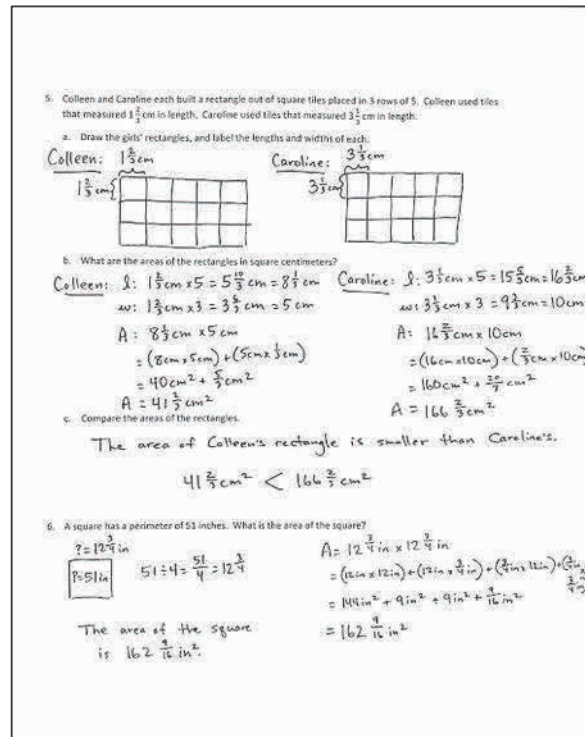 5. Colleen and Caroline each built a rectangle out of square tiles placed in 3 rows of 5. Colleen used tiles
that measured 1 2/3 cm in length. Caroline used tiles that measured 3 1/3 cm in length.
a. Draw the girls' rectangles, and label the lengths and widths of each.
Colleen: 1 2/3 cm
Caroline: 3 1/3 cm
1 2/3 cm
3 1/3 cm
b. What are the areas of the rectangles in square centimeters?
Colleen: l: 1 2/3 cm x 5 = 5 10/3 cm = 8 1/3 cm
w: 1 2/3 cm x 3 = 3 6/3 cm = 5 cm
A: 8 1/3 cm x 5 cm
= (8cm x 5cm) + (5cm x 1/3 cm)
= 40cm² + 5/3 cm²
A = 41 2/3 cm²
Caroline: l: 3 1/3 cm x 5 = 15 5/3 cm = 16 2/3 cm
w: 3 1/3 cm x 3 = 9 3/3 cm = 10cm
A: 16 2/3 cm x 10cm
= (16cm x 10cm) + (2/3 cm x 10cm)
= 160cm² + 20/3 cm²
A = 166 2/3 cm²
c. Compare the areas of the rectangles.
The area of Colleen's rectangle is smaller than Caroline's.
41 2/3 cm² < 166 2/3 cm²
6. A square has a perimeter of 51 inches. What is the area of the square?
? = 12 3/4 in
P=51in
51 ÷ 4 = 51/4 = 12 3/4
The area of the square
is 162 9/16 in².
A = 12 3/4 in x 12 3/4 in
= (12in x 12in) + (12in x 3/4 in) + (3/4 in x 12in) + (3/4 in x
3/4 in)
= 144in² + 9in² + 9in² + 9/16 in²
= 162 9/16 in²